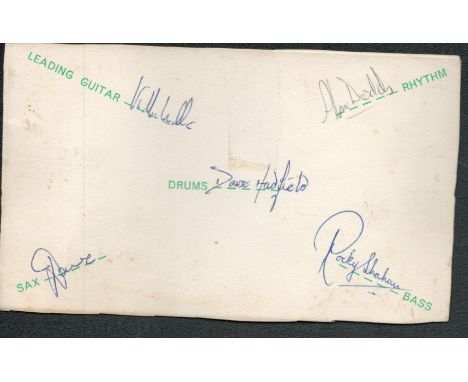 LEADING GUITAR
Alan Dodds RHYTHM
DRUMS Dave Hadfield
SAX
Rocky Shahan
BASS